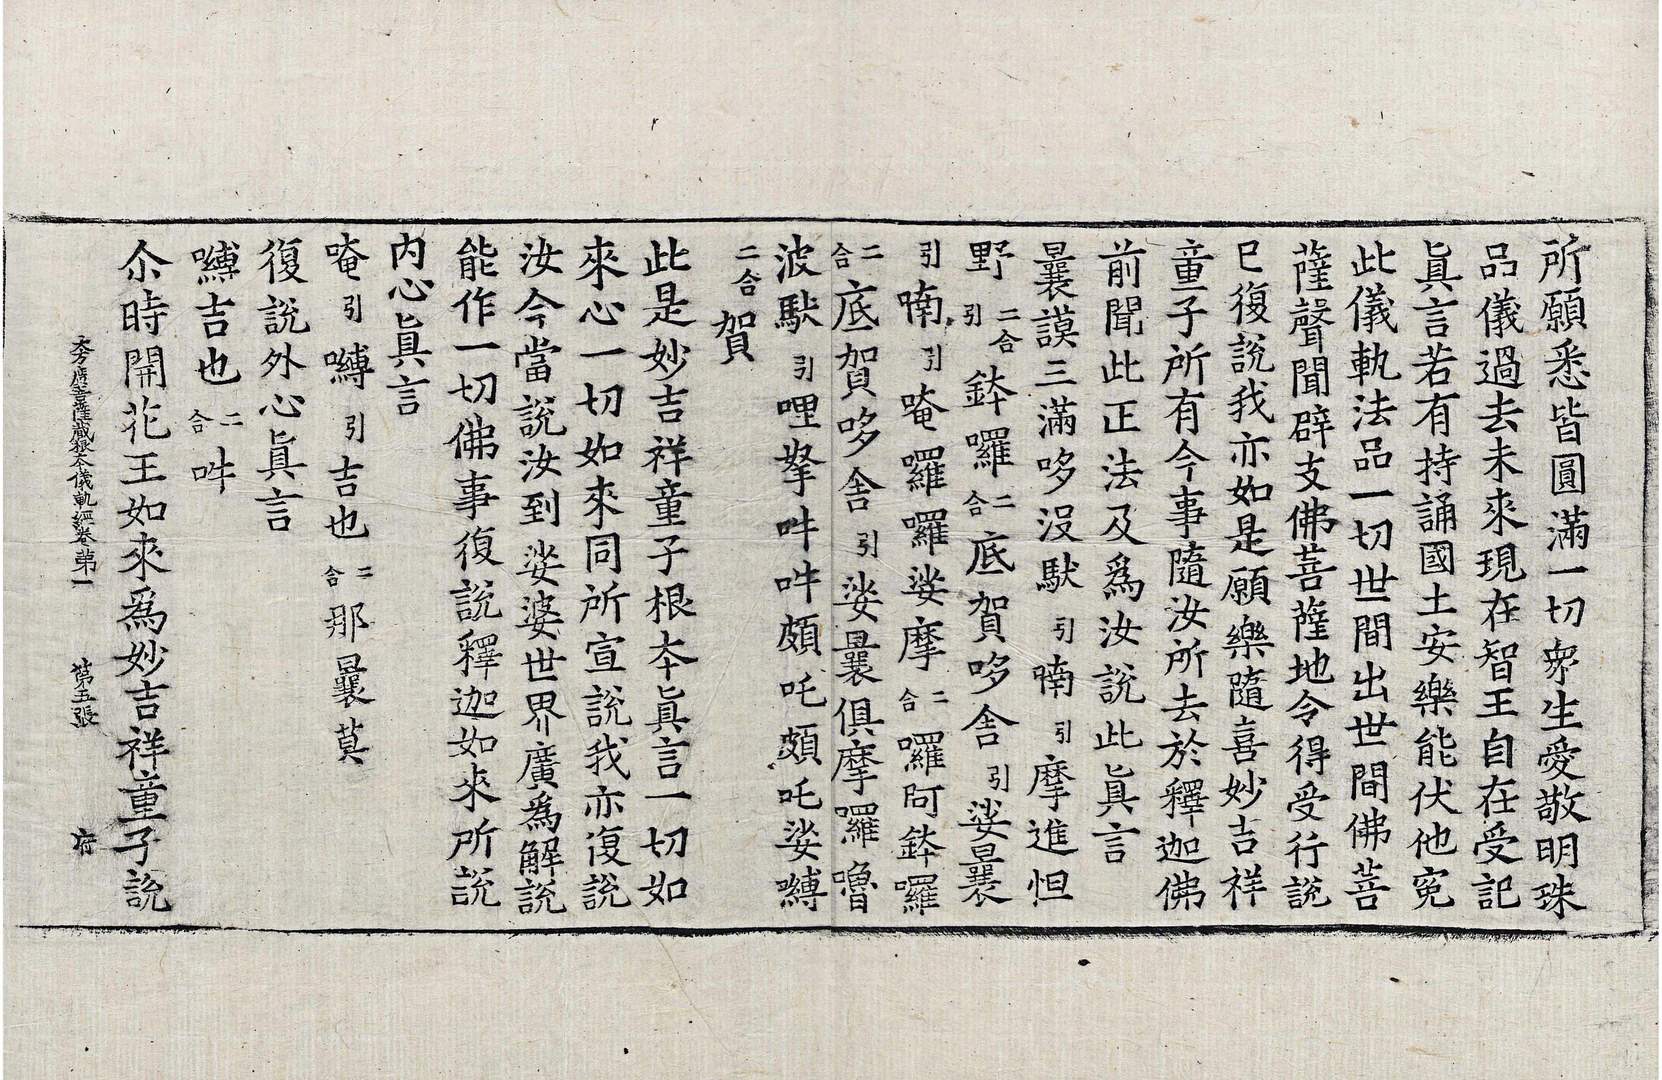 所願悉皆圓滿一切衆生愛敬明珠
品儀過去未來現在智王自在受記
眞言若有持誦國土安樂能伏他寃
此儀軌法品一切世間出世間佛菩
薩聲聞辟支佛菩薩地令得受行說
已復說我亦如是願樂隨喜妙吉祥
童子所有今事隨汝所去於釋迦佛
前聞此正法及爲汝說此眞言
曩謨三滿哆沒馱引喃引摩進怛
野二合引鉢囉二合底賀哆舍引娑曩
引喃引唵囉囉娑摩二合囉阿鉢囉
二合底賀哆舍引娑曩俱摩囉嚕
波馱引哩拏吽吽頗吒頗吒娑嚩
二合賀
此是妙吉祥童子根夲眞言一切如
來心一切如來同所宣說我亦復說
汝今當說汝到娑婆世界廣爲解說
能作一切佛事復說釋迦如來所說
内心眞言
唵引嚩引吉也二合那曩莫
復說外心眞言
嚩吉也二合吽
尒時開花王如來爲妙吉祥童子說
大方廣菩薩藏根夲儀軌經卷第一 第五張 府